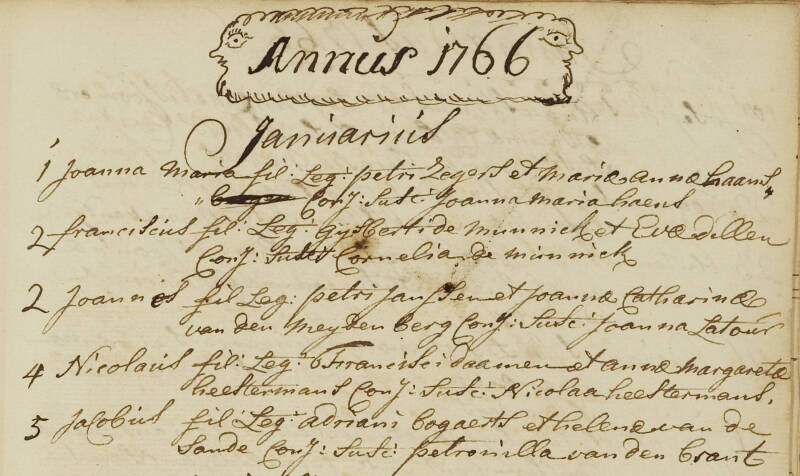 Annus 1766
Januarius
1 Joanna Maria fil: Leg: petri Zegers et Mariæ annæ haans
Conj: Susc: Joanna Maria haens
2 franciscus fil: Leg: Gijsberti de Munnick et Evæ dillen
Conj: Susc: Cornelia de munnick
2 Joannes fil Leg: petri Janssen et Joannæ Catharinæ
van den Meijdenberg Conj: Susc: Joanna Latour
4 Nicolaus fil: Leg: francisci daamen et annæ Margaretæ
heestermans Conj: Susc: Nicolaa heestermans.
5 Jacobus fil: Leg: adriani bogaerts et helenæ van de
Sande Conj: Susc: petronilla van den brant